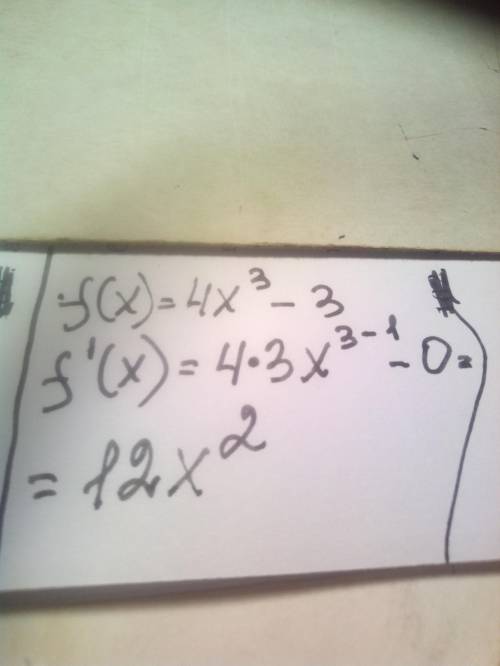 f(x) = 4x³ - 3
f'(x) = 4·3x³⁻¹ - 0 =
= 12x²